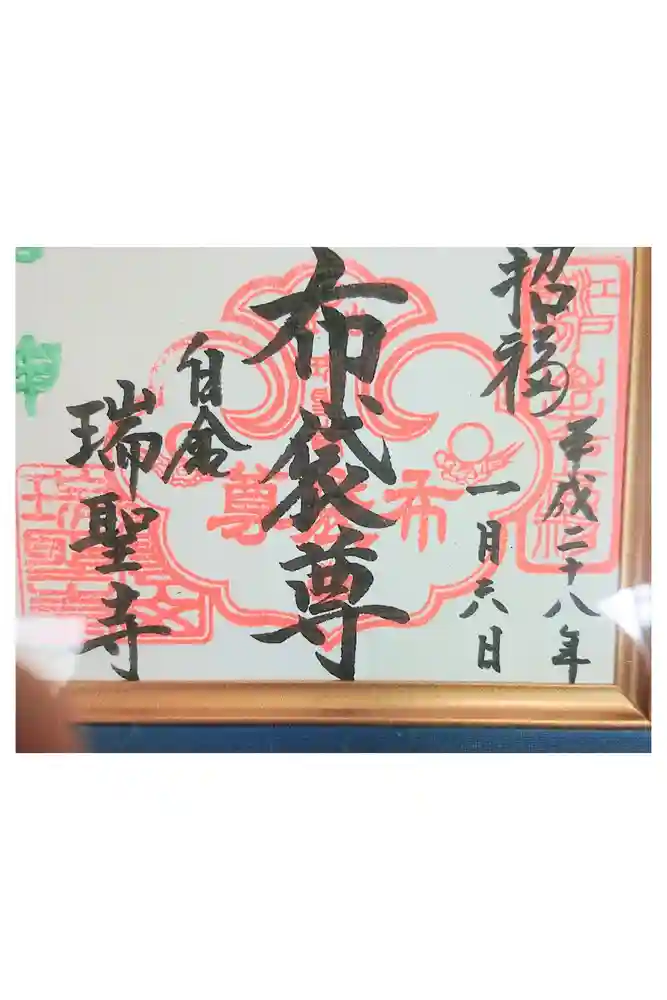 招福
平成二十八年
一月六日
布袋尊
布袋尊
白金
瑞聖寺